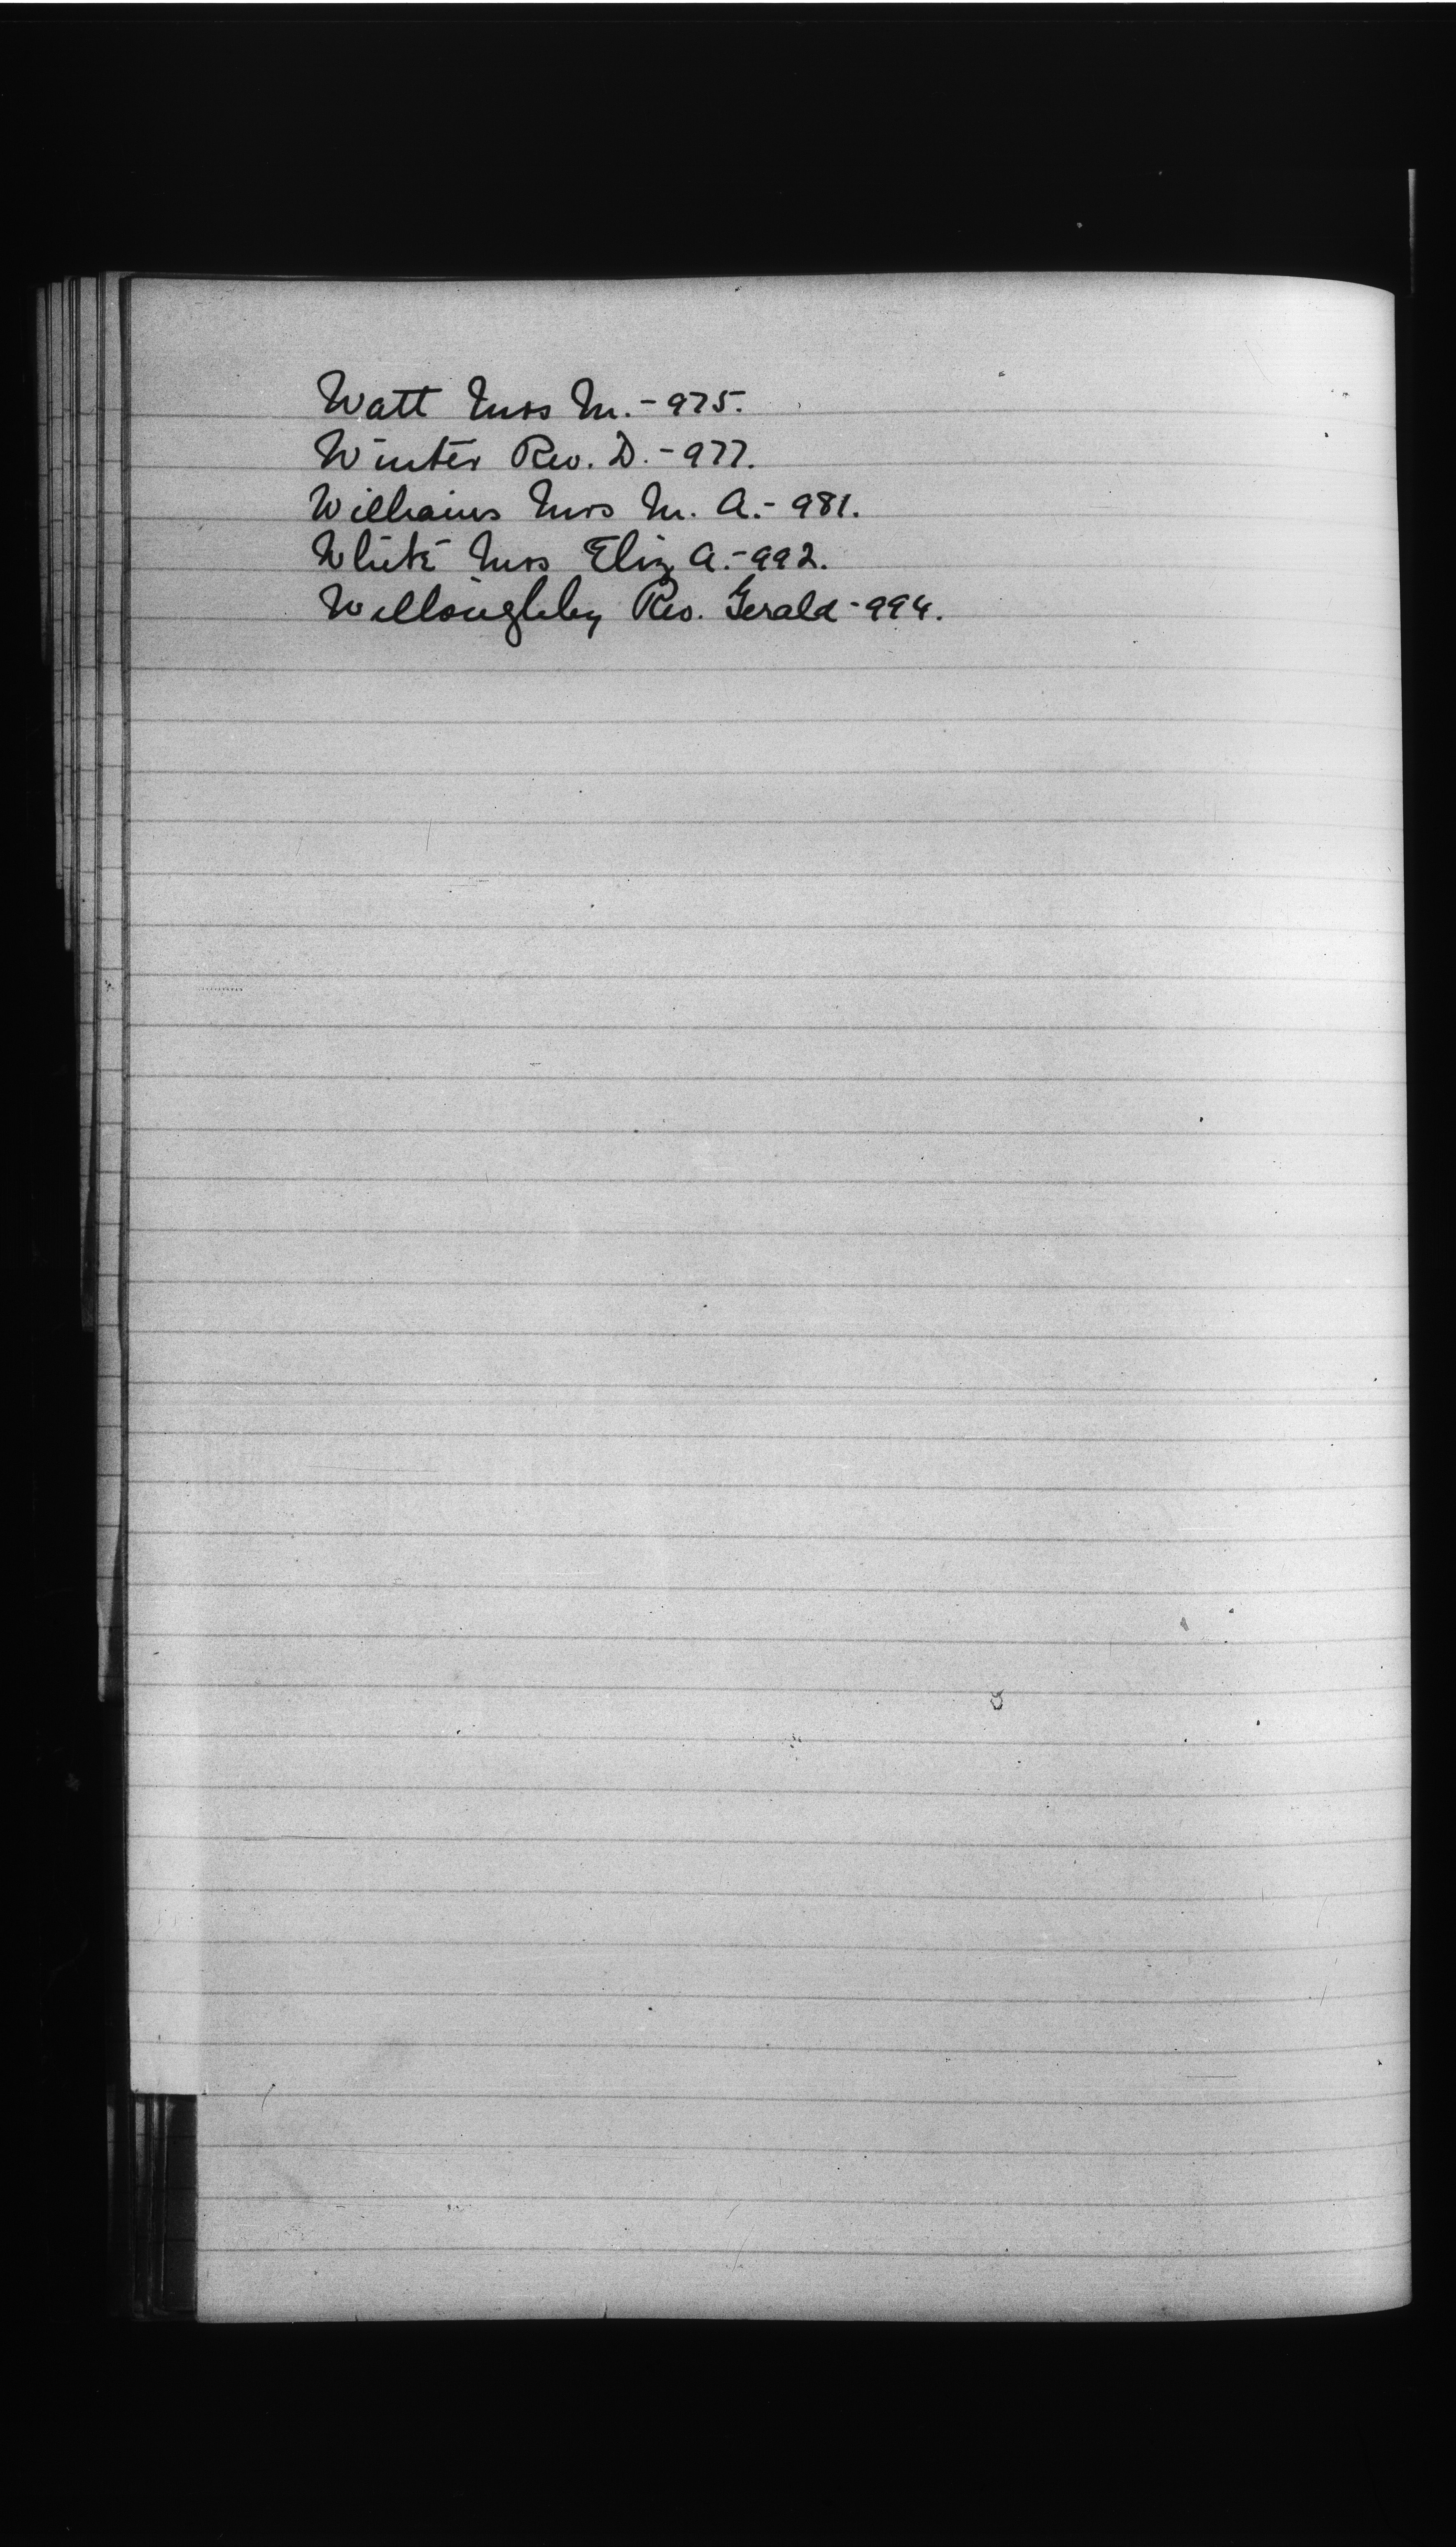 Watt Mrs M. - 975.
Winter Rev. D. - 977.
Williams Mrs M. A. - 981.
White Mrs Eliz A. - 992.
Willoughby Rev. Gerald - 994.